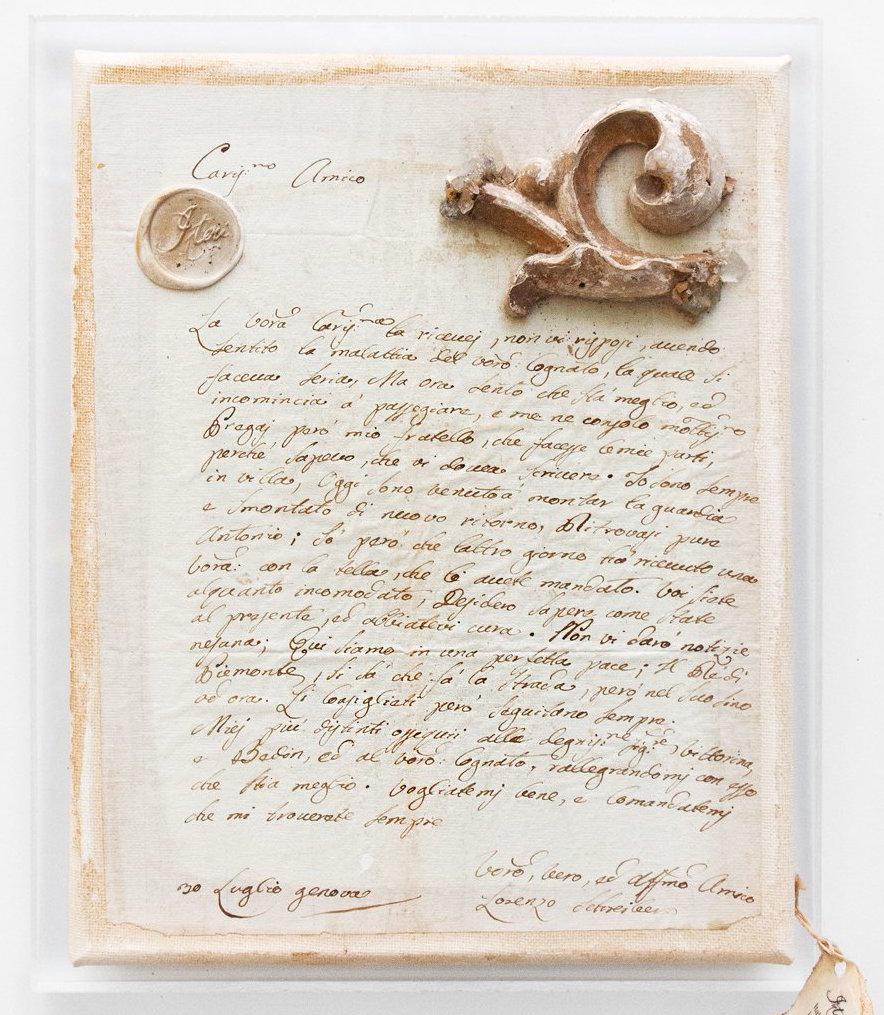 Cariss:mo Amico
La vorã Cariss:ma la riceuei, non vi risposi, auendo
sentito la malattia del vorõ Cognato, la quale si
faceua seria, Ma ora sento che stà meglio, ed
incomincia a' passegiare, e me ne consolo moltiss:mo
Pregai però mio fratello, che facesse le mie parti,
perche sapeuo, che vi doueua scriuere. Io sono sempre
in villa, Oggi sono venuto a' montar la guardia
e smontato di nuovo ritorno, Ritrovasi pure
Antonio; Sò però che l'altro giorno hà riceuuto una
vorã: con la tella, che li auete mandato. Voi siete
alquanto incomodato, Desidero sapere come state
al presente, ed abbiatevi cura. Non vi darò notizie
nesuna; Qui siamo in una perfetta pace; Il Rè di
Piemonte, si sà che fà la strada, però nel suo sino
ad ora. Li Consigliati però seguitano sempre.
Miei più distinti ossequi alla degniss:me Sig:re, Vittorina,
e Bedin, ed al vorõ: Cognato, rallegrandomi con esso
che stia meglio. Vogliatemi bene, e Comandatemi
che mi trouerete sempre
Vorõ, vero, ed affmõ Amico
30 Luglio genova
Lorenzo